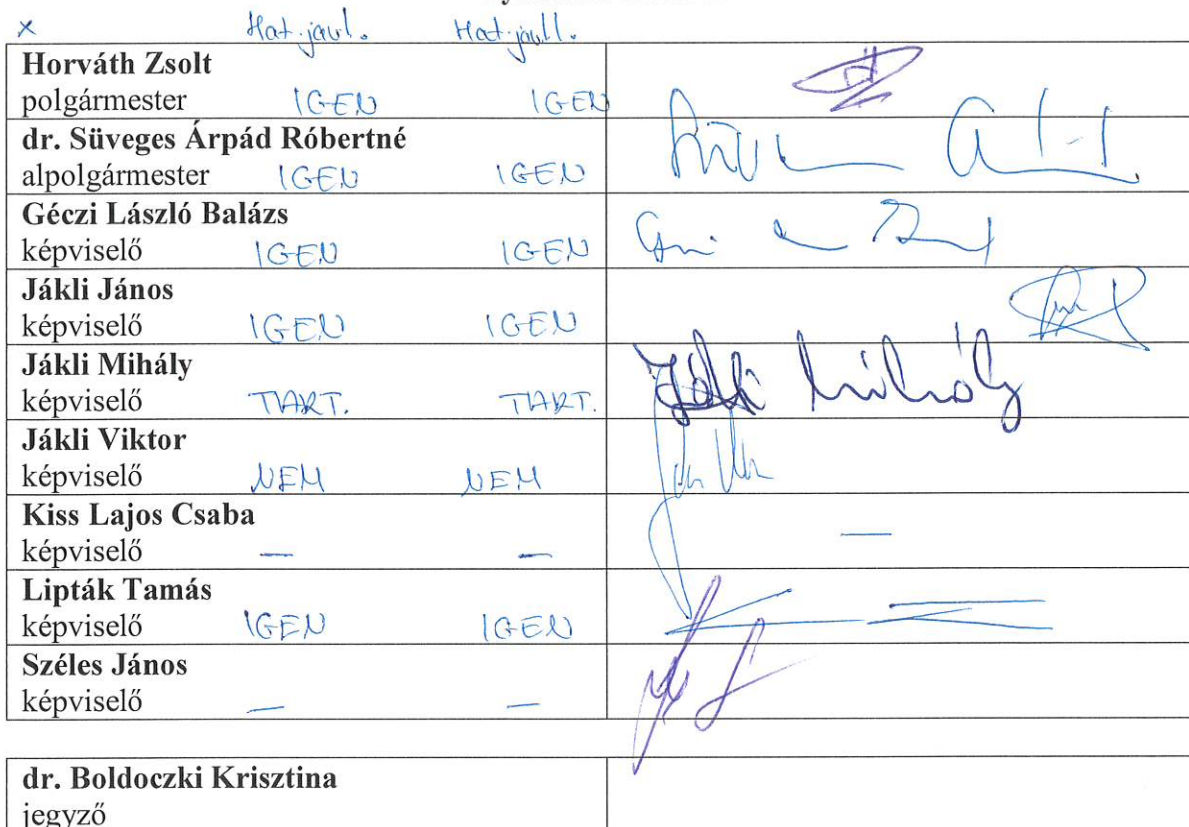 x Hat.javl. Hat.javll.
Horváth Zsolt
polgármester IGEN IGEN
dr. Süveges Árpád Róbertné
alpolgármester IGEN IGEN
Géczi László Balázs
képviselő IGEN IGEN
Jákli János
képviselő IGEN IGEN
Jákli Mihály
képviselő TART. TART. Jákli Mihály
Jákli Viktor
képviselő NEM NEM
Kiss Lajos Csaba
képviselő — — —
Lipták Tamás
képviselő IGEN IGEN
Széles János
képviselő — —
dr. Boldoczki Krisztina
jegyző